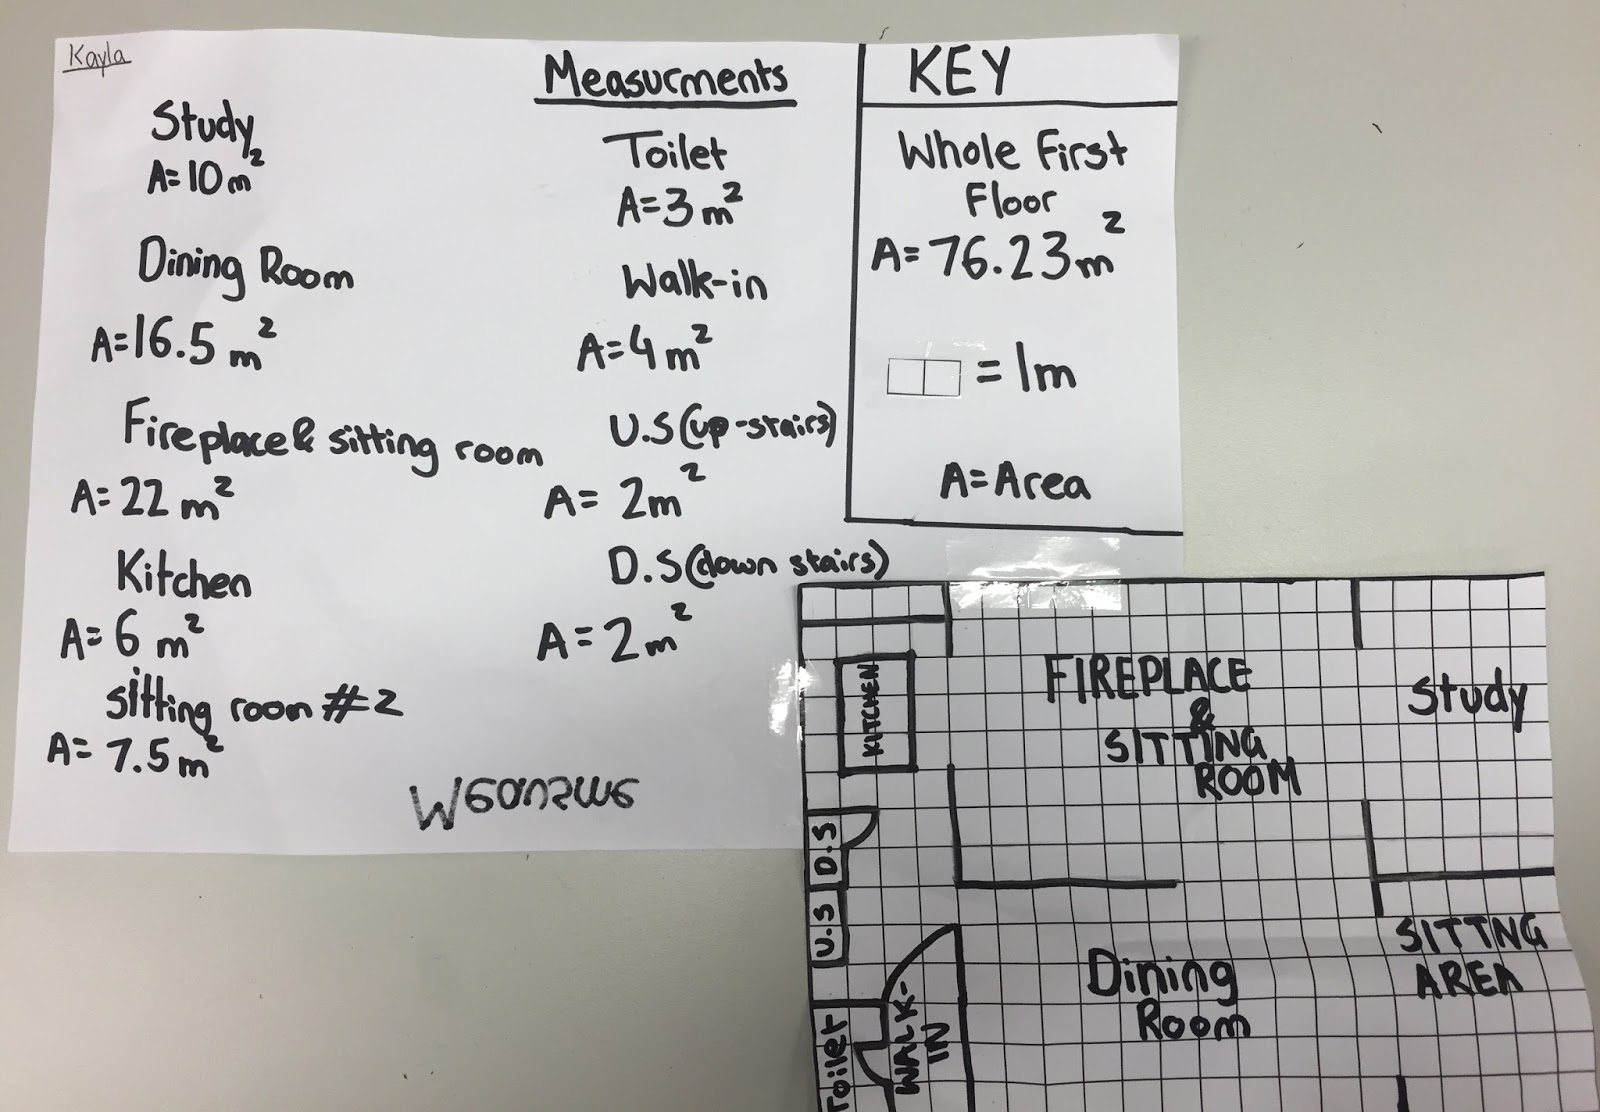 Kayla
Measurments
Study
A=10m²
Dining Room
A=16.5 m²
Fireplace & sitting room
A=22 m²
Kitchen
A=6 m²
sitting room #2
A=7.5m²
Toilet
A=3m²
Walk-in
A=4m²
U.S (up-stairs)
A= 2m²
D.S (down stairs)
A=2m²
KEY
Whole First
Floor
A=76.23m²
=1m
A=Area
KITCHEN
D.S
U.S
Toilet
WALK-
IN
FIREPLACE
&
SITTING
ROOM
Study
Dining
Room
SITTNG
AREA